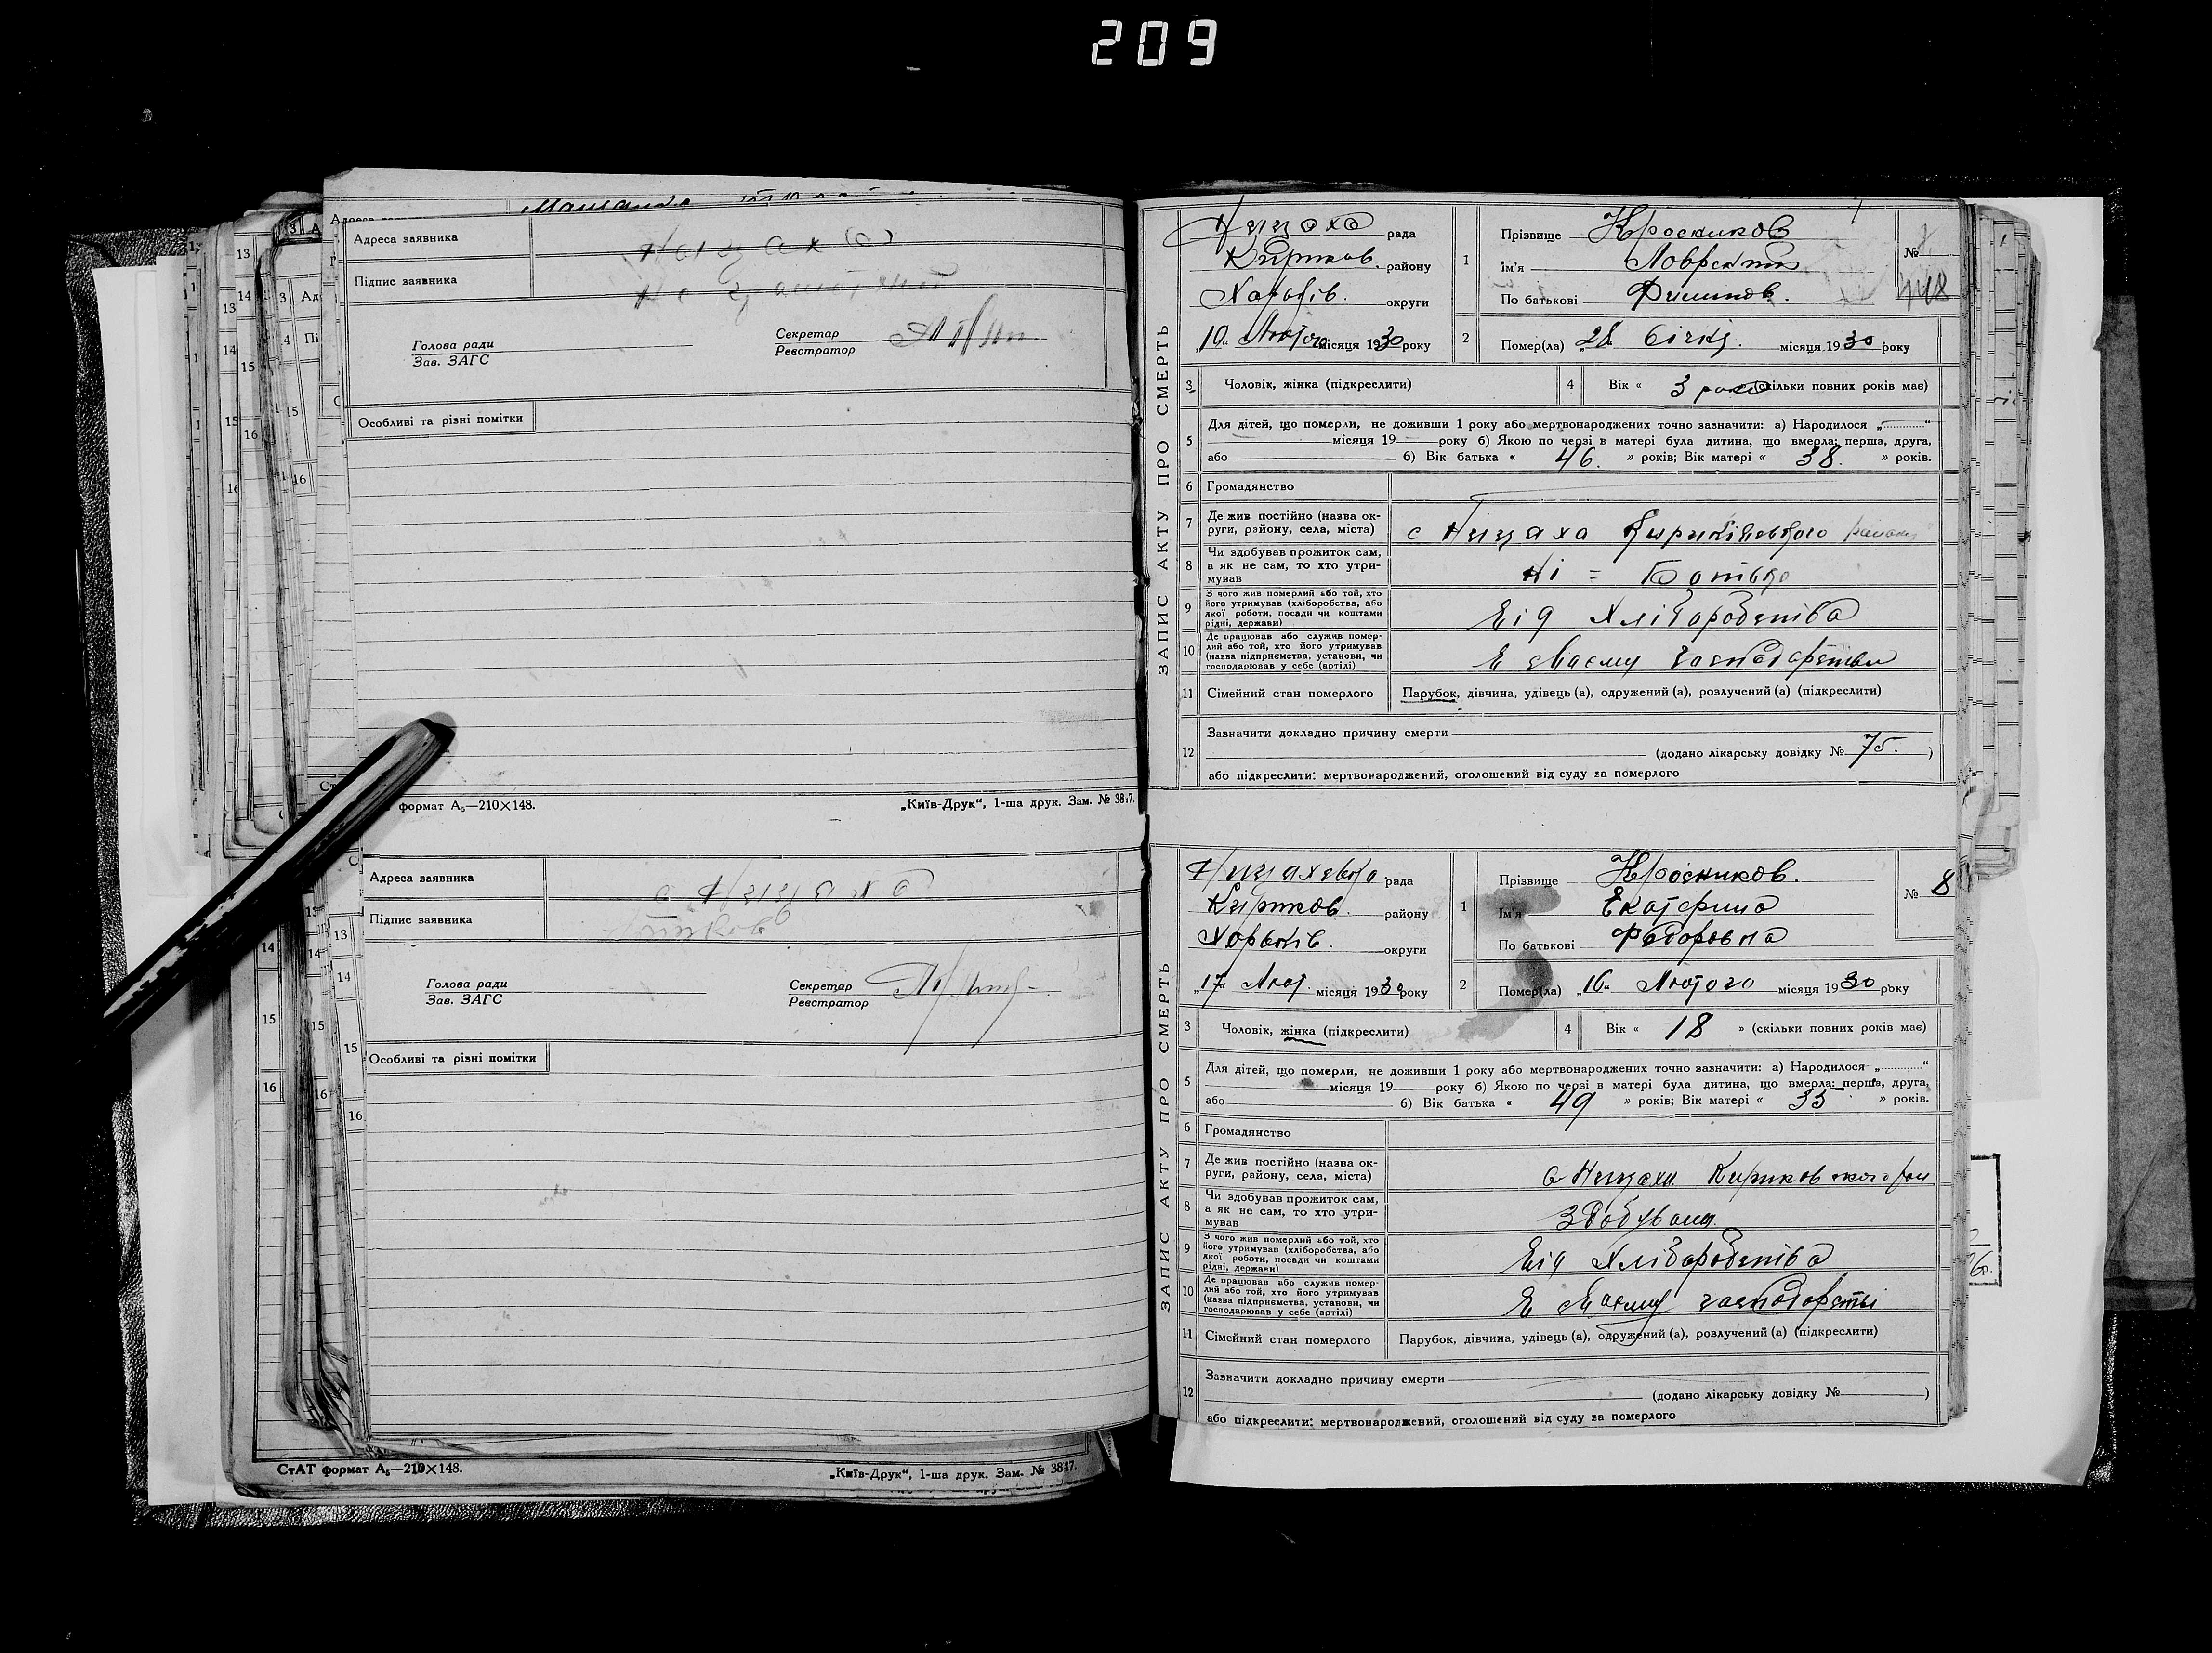 209
Адреса заявника
Підпис заявника
Голова ради
Зав. ЗАГС
Секретар
Реєстратор
Особливі та різні помітки
формат А₅—210×148.
„Київ-Друк“, 1-ша друк. Зам. № 3847.
Адреса заявника
Підпис заявника
Голова ради
Зав. ЗАГС
Секретар
Реєстратор
Особливі та різні помітки
СтАТ формат А₅—210×148.
„Київ-Друк“, 1-ша друк. Зам. № 3847.
ЗАПИС АКТУ ПРО СМЕРТЬ
Ницаха рада
району
округи
„10“ Лютого місяця 1930 року
1
Прізвище Кросников
Ім'я
По батькові
№
2
Помер(ла) „28 Січня місяця 1930 року
3
Чоловік, жінка (підкреслити)
4
Вік « 3 роки (скільки повних років має)
5
Для дітей, що померли, не доживши 1 року або мертвонароджених точно зазначити: а) Народилося „ “
місяця 19 року б) Якою по черзі в матері була дитина, що вмерла: перша, друга,
або 6) Вік батька « 46. » років; Вік матері « 38. » років.
6
Громадянство
7
Де жив постійно (назва округи, району, села, міста)
с Ницаха району
8
Чи здобував прожиток сам, а як не сам, то хто утримував
ні = Батько
9
З чого жив померлий або той, хто його утримував (хліборобства, або якої роботи, посади чи коштами рідні, держави)
Від Хліборобства
10
Де працював або служив померлий або той, хто його утримував (назва підприємства, установи, чи господарював у себе (артілі)
В своєму господарстві
11
Сімейний стан померлого
Парубок, дівчина, удівець (а), одружений (а), розлучений (а) (підкреслити)
12
Зазначити докладно причину смерти
(додано лікарську довідку № 75. )
або підкреслити: мертвонароджений, оголошений від суду за померлого
ЗАПИС АКТУ ПРО СМЕРТЬ
рада
Кириков. району
Харьків. округи
„17“ Лют. місяця 1930 року
1
Прізвище Кросников.
Ім'я Екатерина
По батькові Федоровна
№ 8
2
Помер(ла) „16“ Лютого місяця 1930 року
3
Чоловік, жінка (підкреслити)
4
Вік « 18 » (скільки повних років має)
5
Для дітей, що померли, не доживши 1 року або мертвонароджених точно зазначити: а) Народилося „ “
місяця 19 року б) Якою по черзі в матері була дитина, що вмерла: перша, друга,
або 6) Вік батька « 49 » років; Вік матері « 35 » років.
6
Громадянство
7
Де жив постійно (назва округи, району, села, міста)
с Ницаха Кириковського рай
8
Чи здобував прожиток сам, а як не сам, то хто утримував
Здобувала.
9
З чого жив померлий або той, хто його утримував (хліборобства, або якої роботи, посади чи коштами рідні, держави)
Від Хліборобства
10
Де працював або служив померлий або той, хто його утримував (назва підприємства, установи, чи господарював у себе (артілі)
В своєму господарстві
11
Сімейний стан померлого
Парубок, дівчина, удівець (а), одружений (а), розлучений (а) (підкреслити)
12
Зазначити докладно причину смерти
(додано лікарську довідку № )
або підкреслити: мертвонароджений, оголошений від суду за померлого